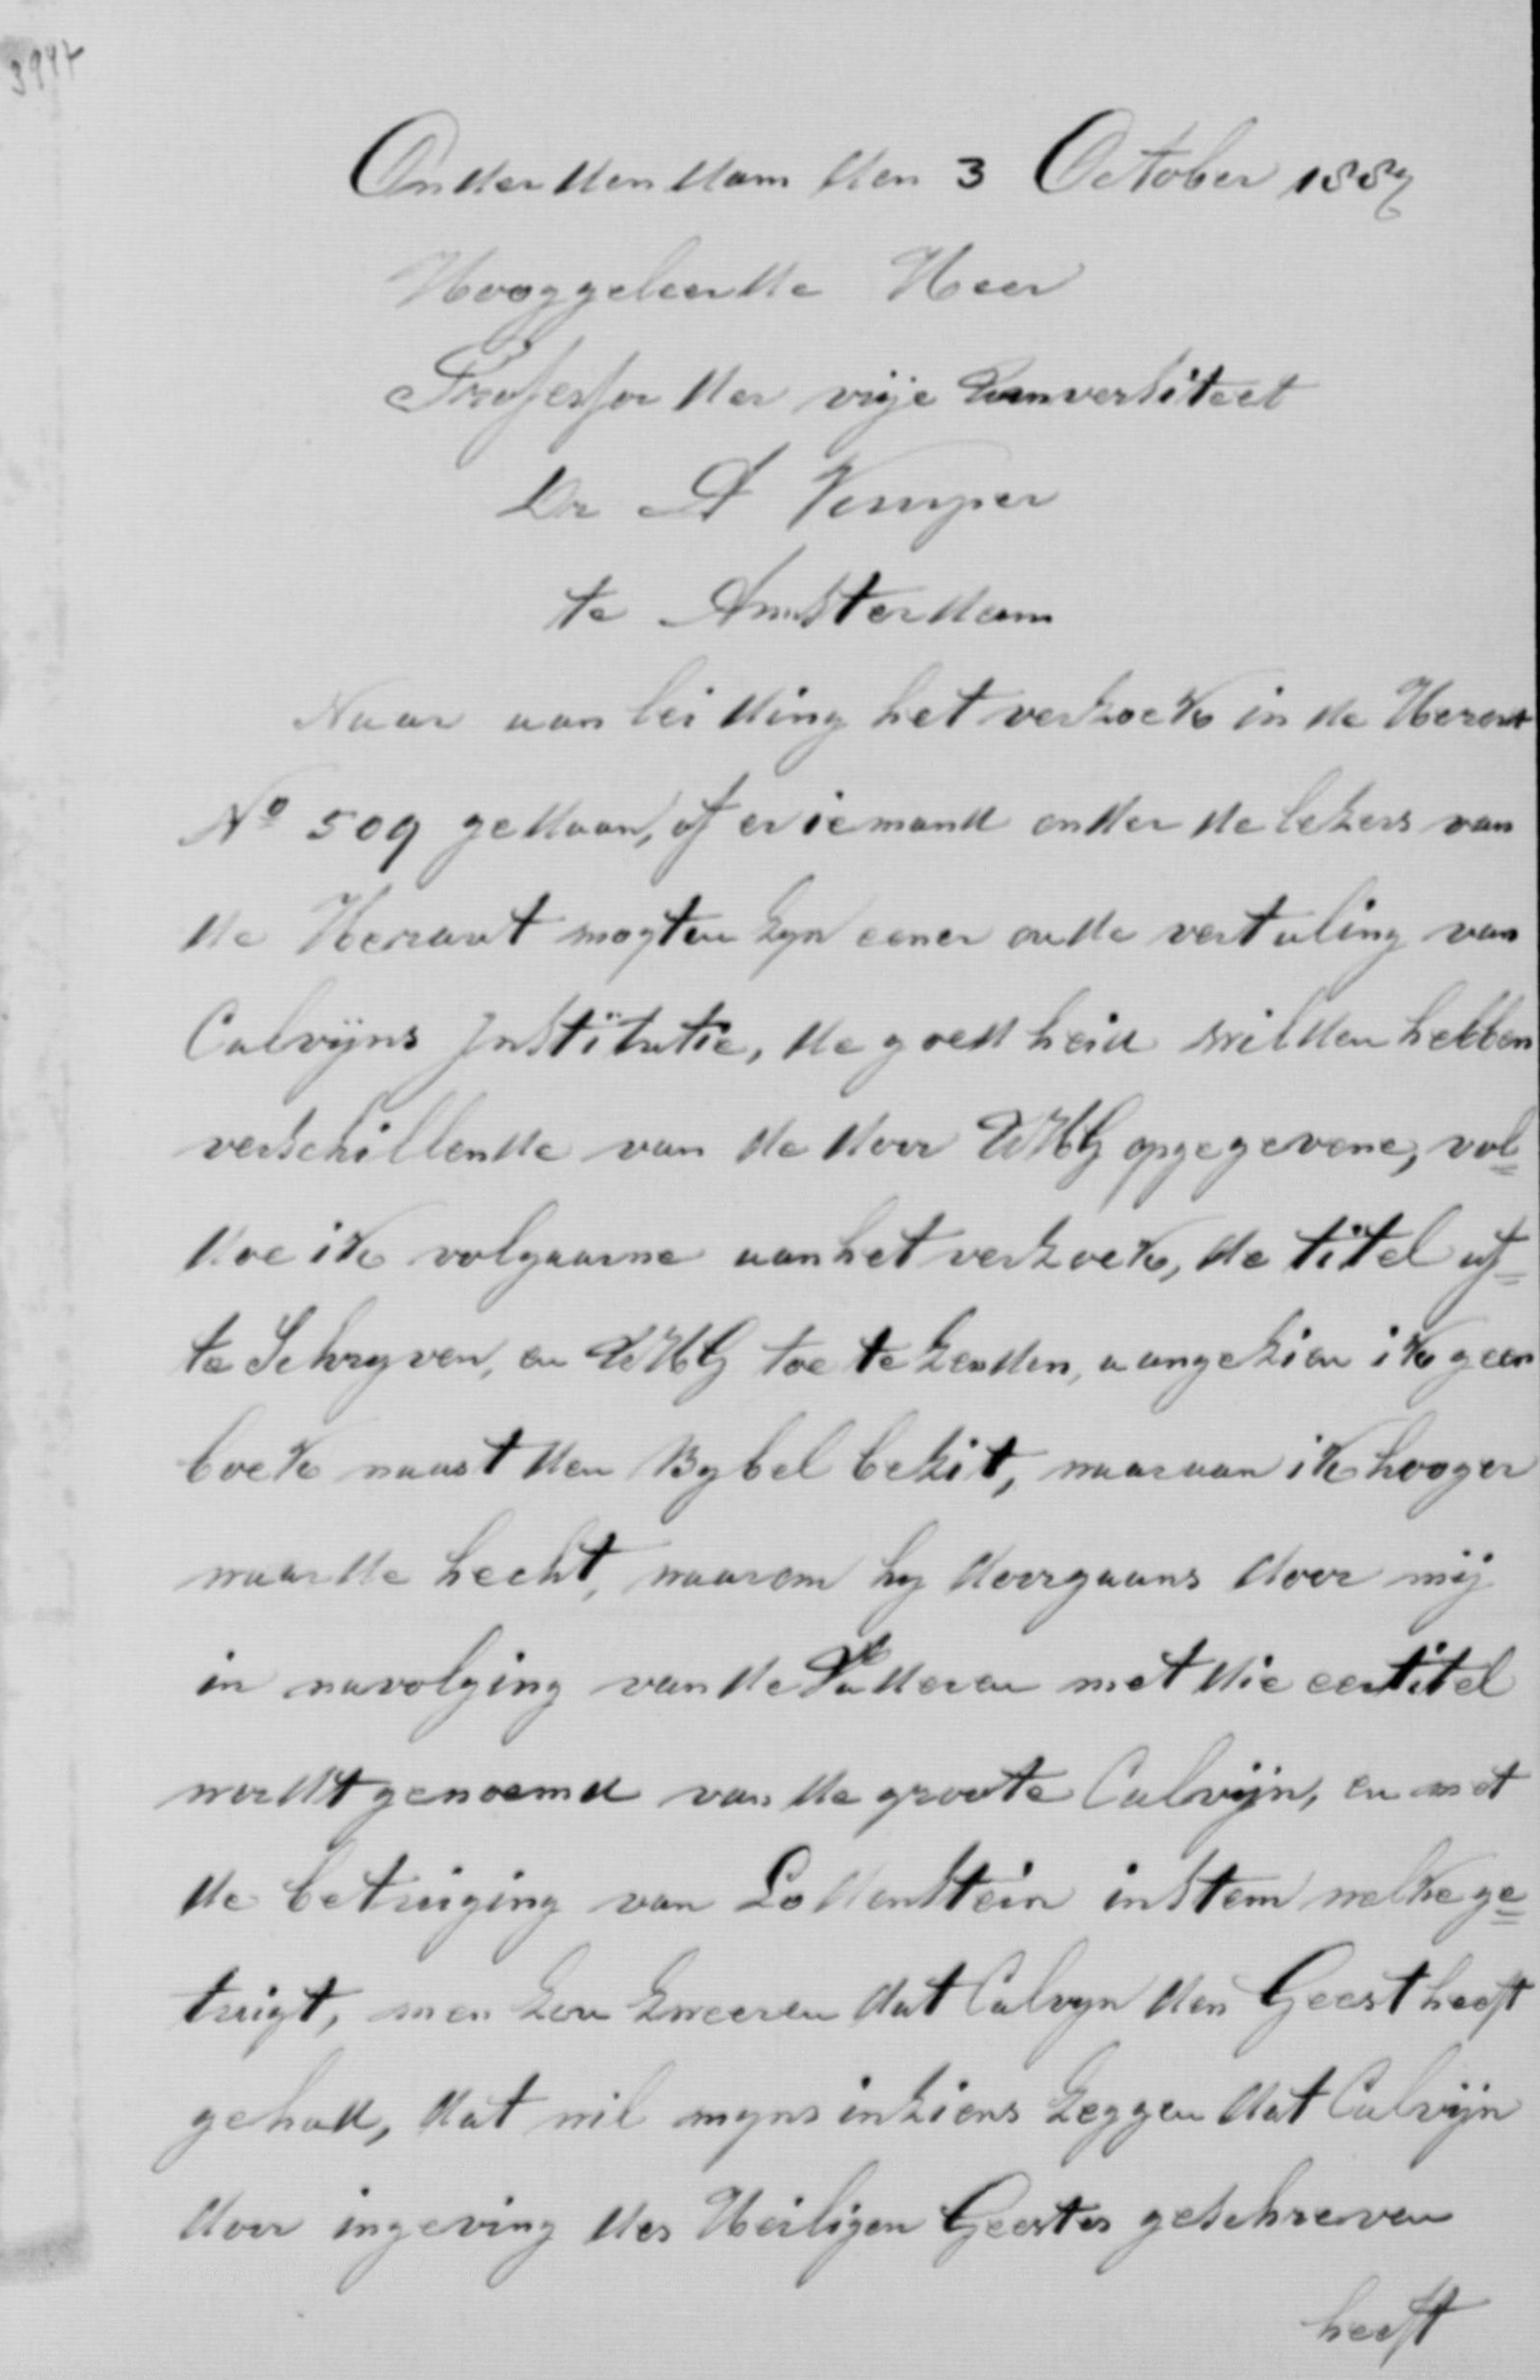 3944
Onderdendam den 3 October 1887
Hooggeleerde Heer
Professor der vrije Universiteit
Dr A Kuyper
te Amsterdam
Naar aanleiding het verzoek in de Heraut
No 509 gedaan, of er iemand onder de lezers van
de Heraut mogten zyn eener oude vertaling van
Calvijns Institutie, de goedheid wilden hebben
verschillende van de door UHG opgegevene, vol=
doe ik volgaarne aan het verzoek, de titel af=
te Schryven, en UHG toe te zenden, aangezien ik geen
boek naast den Bybel bezit, waaraan ik hooger
waarde hecht, waarom hy doorgaans door mij
in navolging van de Vaderen met die eertitel
wordt genoemd van de groote Calvijn, en met
de betuiging van Lodenstein instem welke ge=
tuigt, men zou zweeren dat Calvyn den Geest heeft
gehad, dat wil myns inziens zeggen dat Calvijn
door ingeving des Heiligen Geestes geschreven
heeft